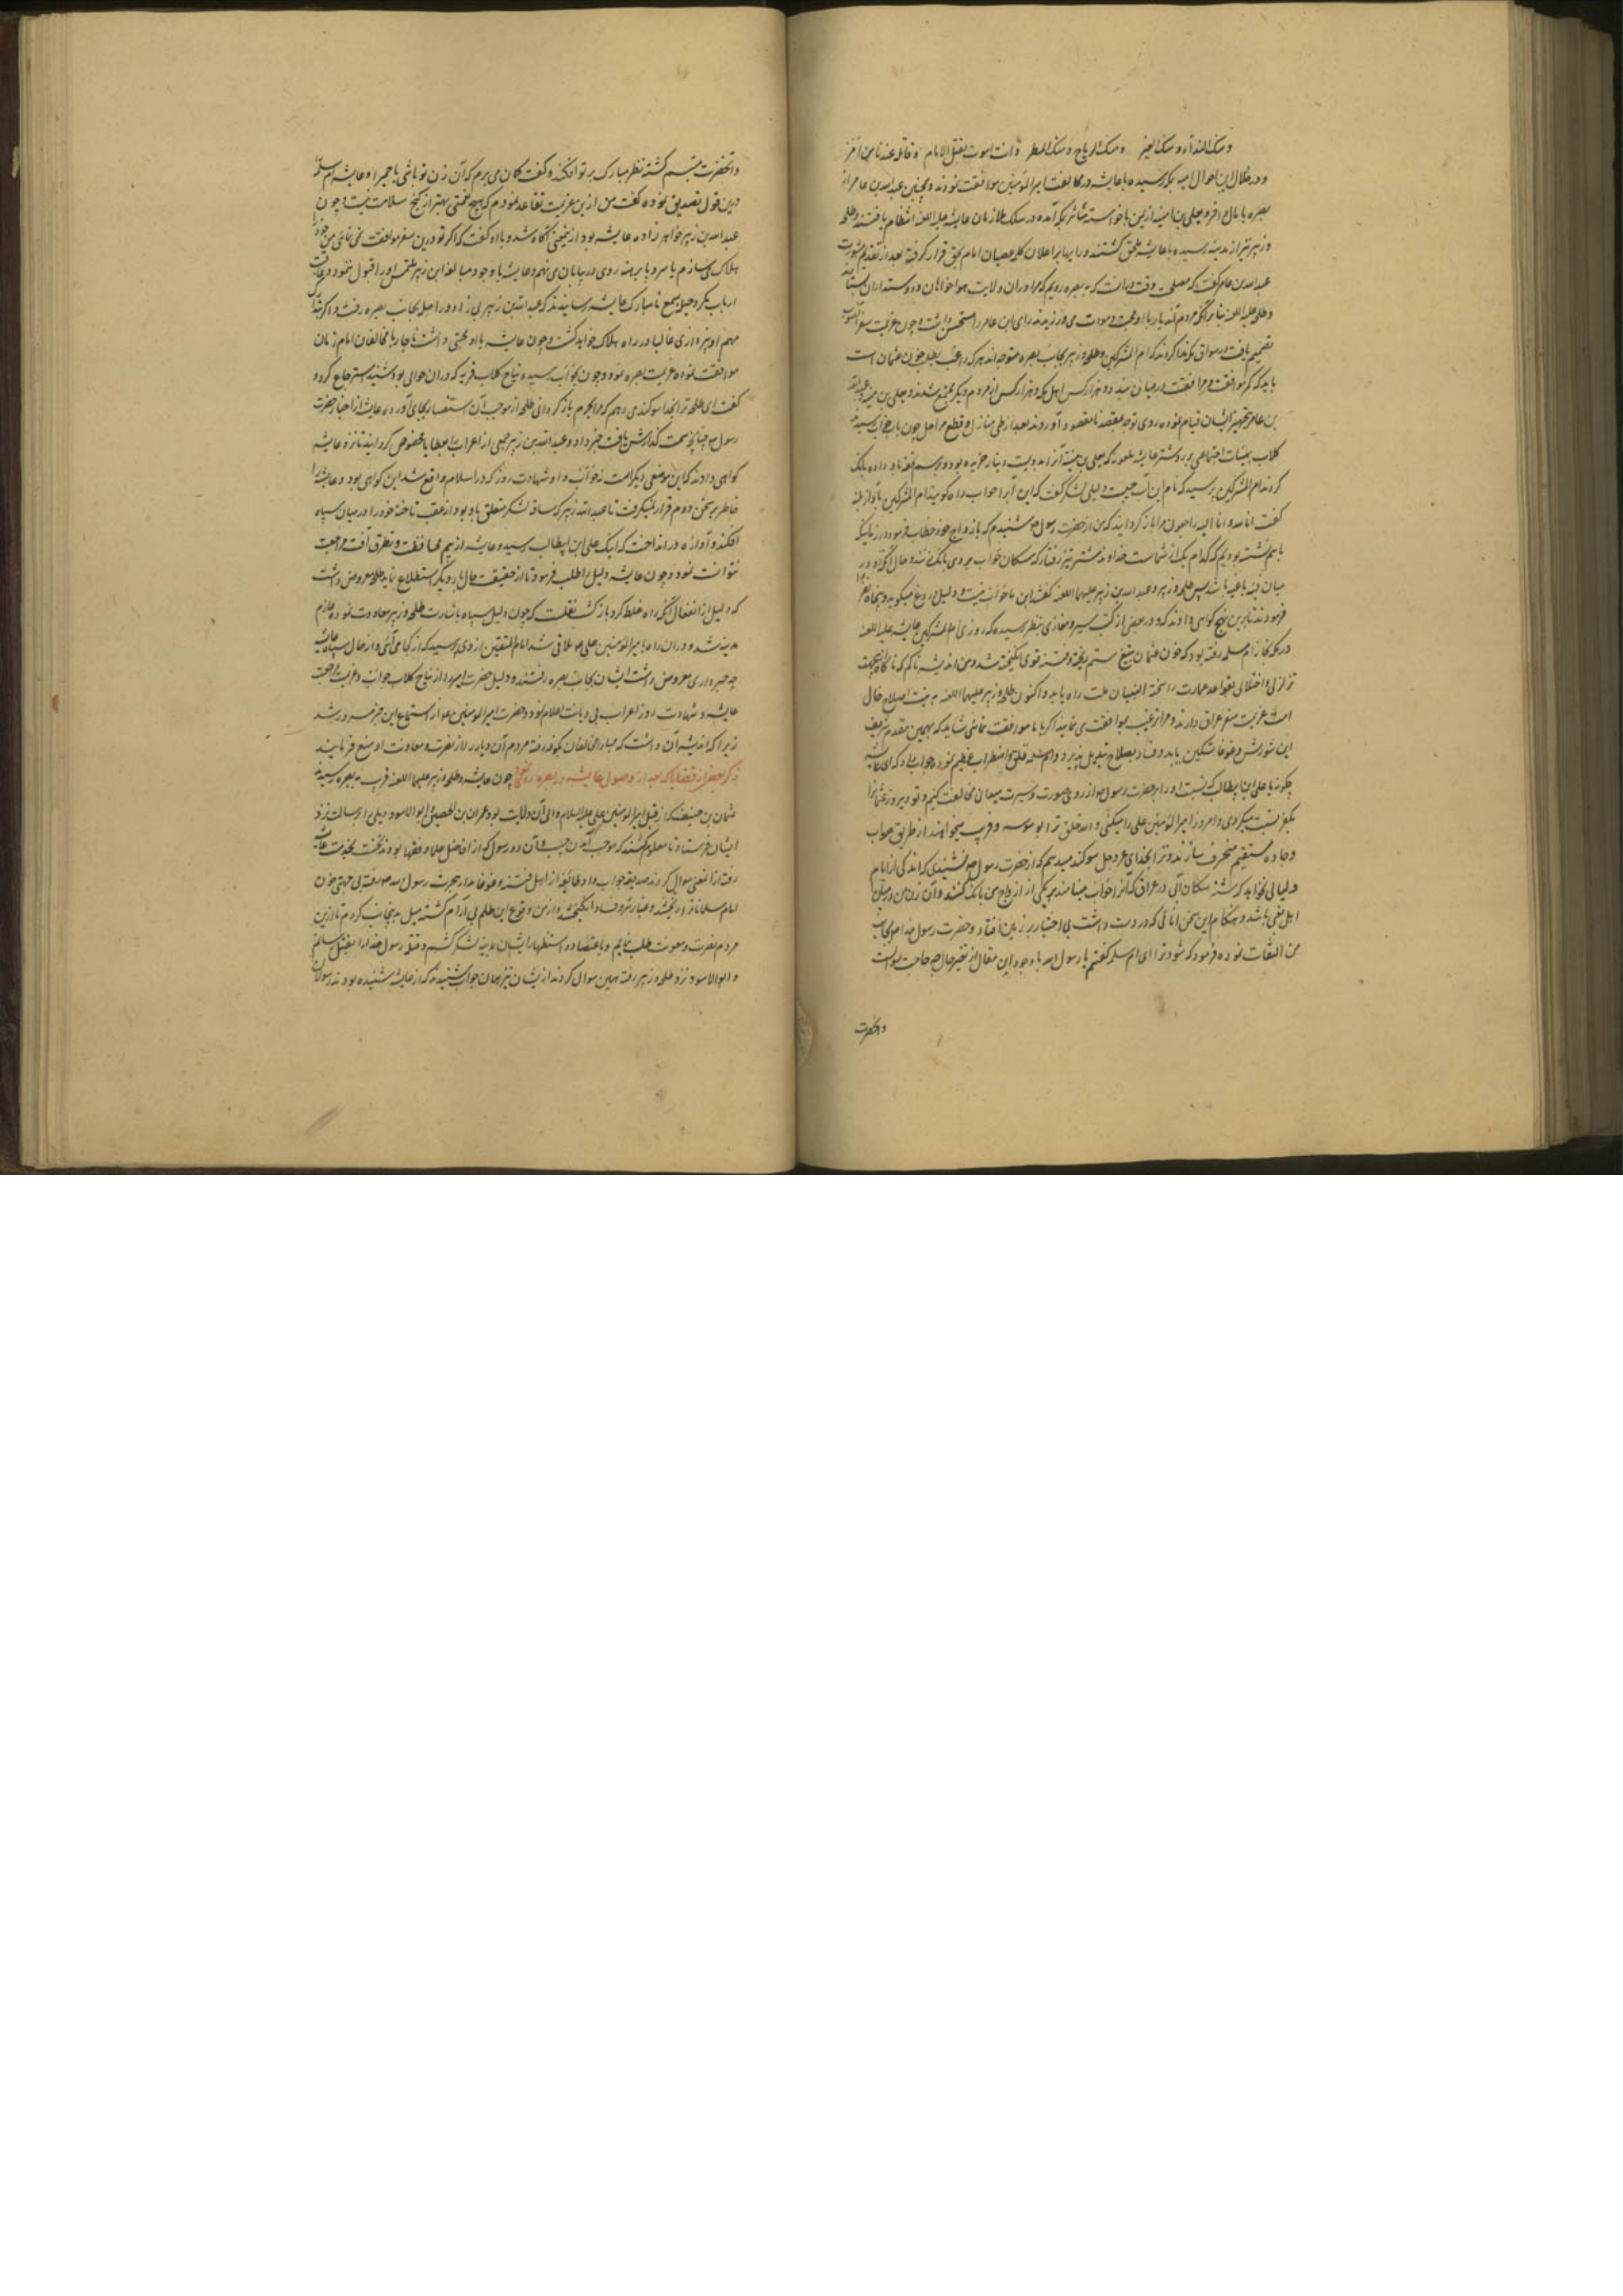 ومنک النداء ومنک العیر ومنک الریاح ومنک المطر وانت امرت بقتل الامام وقاتله عندنا من امر
ودر خلال این احوال بمکه رسیده با عایشه در مخالفت امیر المؤمنین موافقت نمودند وهمچنین عبدالله بن عامر از
بصره با مال وافر ویعلی بن امیه از یمن با خواسته متکاثر بمکه آمده در سلک ملازمان عایشه علیه اللعنه انتظام یافتند وطلحه
وزبیر نیز از مدینه رسیده با عایشه ملحق گشتند ورایها بر اعلان کلمه عصیان امام بحق قرار گرفته بعد از تقدیم مشورت
عبدالله بن عامر گفت که مصلحت وقت در آنست که به بصره رویم که مرا در آن ولایت هواخواهان ودوستداران بسیارند
وطلحه علیه اللعنه بنا بر آنکه مردم آن دیار با او محبت ومودت می ورزیدند رای ابن عامر را مستحسن داشت وچون عزیمت سفر
تصمیم یافت در اسواق مکه ندا کردند که ام المشرکین وطلحه وزبیر بجانب بصره متوجه اند هر که راغب بطلب خون عثمان است
باید که کمر موافقت ومرافقت در میان بندد وهزار کس اهل مکه وهزار کس از مردم دیگر مجتمع شدند ویعلی بن منیه وعبدالله
بن عامر بتجهیز ایشان قیام نموده روی توجه بمقصد نامقصود آوردند بعد از طی منازل وقطع مراحل چون بآب حوأب رسیدند
کلاب بهیئات اجتماعی بر روی شتر عایشه ملعونه که یعلی بن منیه آنرا بدویست دینار خریده بود وبرسم تحفه باو داده بانک
کردند ام المشرکین پرسید که نام این آب چیست دلیل لشکر گفت که این آبرا حوأب داه گویند ام المشرکین بآواز بلند
گفت انا لله وانا الیه راجعون مرا باز گردانید که من از حضرت رسول ص شنیدم که بازواج خود خطاب فرمود در زمانیکه
باهم نشسته بودیم که کدام یک از شماست خداوند شتر تیز رفتار که سکان حوأب بر وی بانک زنند وحال آنکه او در
میان فئه باغیه باشد پس طلحه وزبیر وعبدالله بن زبیر علیهما اللعنه گفتند این ماء حوأب نیست ودلیل دروغ میگوید وپنجاه نفر
فرمودند تا برین نهج گواهی دادند ودر بعضی از کتب سیر ومغازی بنظر رسیده که روزی ام المشرکین عایشه علیه اللعنه
در مکه بخانه ام سلمه رفته بود که خون عثمان به تیغ ستم ریخته وفتنه قوی انگیخته شد ومن اندیشه ناکم که ناگاه
تزلزلی واختلالی بقواعد عمارت راسخة البنیان ملت راه یابد واکنون طلحه وزبیر علیهما اللعنه به نیت اصلاح حال
امت عزیمت سفر عراق دارند ومرا ترغیب بموافقت می نمایند اگر با ما موافقت نمائی شاید که بیمن مقدم شریف
این شورش وغوغا تسکین یابد وفساد بصلاح تبدیل پذیرد وام سلمه قلق واضطراب عظیم نموده جواب داد که ای عایشه
چگونه با علی ابن ابیطالب که نسبت او را بر حضرت رسول ص از روی صورت وسیرت میدانی مخالفت کنیم وتو دیروز عثمانرا
بکفر نسبت میکردی وامروز امیر المؤمنین علی را میکنی والله خلق ترا بوسوسه وفریب میخواهند از طریق صواب
وجاده مستقیم منحرف سازند وترا بخدای عز وجل سوگند میدهم که از حضرت رسول ص نشنیدی که اندکی از ایام
ولیالی نخواهد گذشت سکان آبی در عراق که آنرا حوأب مینامند بر یکی از ازواج من بانک کنند وآن زن من در میان
اهل بغی باشد وهنگام این سخن انائی که در دست داشت بی اختیار بر زمین افتاد وحضرت رسول خدا ص بجانب
من التفات نموده فرمود که چه شود ترا ای ام سلمه گفتم یا رسول الله با وجود این مقال از تغیر حال چه حاجت سوالست
وانحضرت
وآنحضرت متبسم گشته نظر مبارک بر تو افکند وگفت گمان می برم که آن زن تو باشی یا حمیرا وعایشه ام سلمه را
درین قول تصدیق نموده گفت من ازین عزیمت تقاعد نمودم که هیچ نعمتی بهتر از کنج سلامت نیست وچون
عبدالله بن زبیر خواهر زاده عایشه بود از معنی آگاه شد وبا او گفت که اگر تو درین سفر موافقت نمی نمائی من خود را
هلاک می سازم یا سر وپا برهنه روی در بیابان می نهم وعایشه با وجود مبالغه ابن زبیر ملتمس او را قبول ننمود وعاقبت
ارباب مکر وحیل بسمع نامبارک عایشه رسانیدند که عبدالله بن زبیر بی زاد وراحله بجانب بصره رفت واگر تدارک
مهم او نپردازی غالبا در راه هلاک خواهد گشت وچون عایشه با او محبتی داشت ناچار با مخالفان امام زمان
موافقت نموده عزیمت بصره نمود وچون بحوأب رسیده نباح کلاب قریه که در آن حوالی بود شنید استرجاع کرد و
گفت ای طلحه ترا بخدا سوگند می دهم که مرا بحرم باز گردانی طلحه از موجب آن استفسار بجای آورده عایشه از اخبار حضرت
رسول ص چنانچه سمت گذارش یافت خبر داد وعبدالله بن زبیر جمعی از اعراب را بعطایا مخصوص گردانید تا نزد عایشه
گواهی دادند که این موضعی دیگر است نه حوأب واول شهادت زور که در اسلام واقع شد این گواهی بود وعایشه را
خاطر بر سخن مردم قرار نمیگرفت تا عبدالله زبیر که ساقه لشکر متعلق باو بود از عقب تاخته خود را در میان سپاه
افکند وآوازه در انداخت که اینک علی ابن ابیطالب رسید وعایشه از بیم محافظت وتطرق آفت مراجعت
نتوانست نمود وچون عایشه دلیل را طلب فرمود تا از حقیقت حال بار دیگر استطلاع نماید طلحه معروض داشت
که دلیل از انفعال آنکه راه غلط کرد باز گشت نقلست که چون دلیل سپاه باشارت طلحه وزبیر معاودت نموده عازم
مدینه شد ودر آن راه بامیر المؤمنین علی ع ملاقی شد امام المتقین از وی پرسید که از کجا می آئی واز حال سپاه عایشه
چه خبر داری معروض داشت ایشان بجانب بصره رفتند ودلیل حضرت امیر را از نباح کلاب حوأب وعزیمت مراجعت
عایشه وشهادت زور اعراب بی دیانت اعلام نمود وحضرت امیر المومنین ع از استماع این خبر مسرور شد
زیرا که اندیشه آن داشت که مبادا مخالفان بکوفه رفته مردم آن دیار را از نصرت ومعاونت او منع فرمایند
ذکر بعضی از قضایا که بعد از وصول عایشه در بصره روی نمود چون عایشه وطلحه وزبیر علیهما اللعنه قریب به بصره رسیدند
عثمان بن حنیف که از قبل امیر المومنین علی علیه السلام والی آن ولایت بود عمران بن الحصین وابو الاسود دیلی را برسالت نزد
ایشان فرستاد تا معلوم کنند که موجب آمدن چیست وآن دو رسول که از افاضل علما وفقها بودند نخست بخدمت عایشه
رفته از آنمعنی سوال کردند صدیقه جواب داد که طائفه از اهل فتنه وغوغا بدار هجرت رسول الله ص رفته بی جهتی خون
امام مسلمانانرا ریختند وغبار شر وفساد انگیختند ومن از وقوع این ظلم بی آرام گشته میل بدینجانب کردم تا ازین
مردم نصرت ومعونت طلب نمایم وباعتضاد واستظهار ایشان بمدینه لشکر کشم وفتق رسول خدا را بقتل رسانم
وابو الاسود نزد طلحه وزبیر رفته همین سوال کردند از ایشان نیز همان جواب شنیدند که از عایشه شنیده بودند رسولان